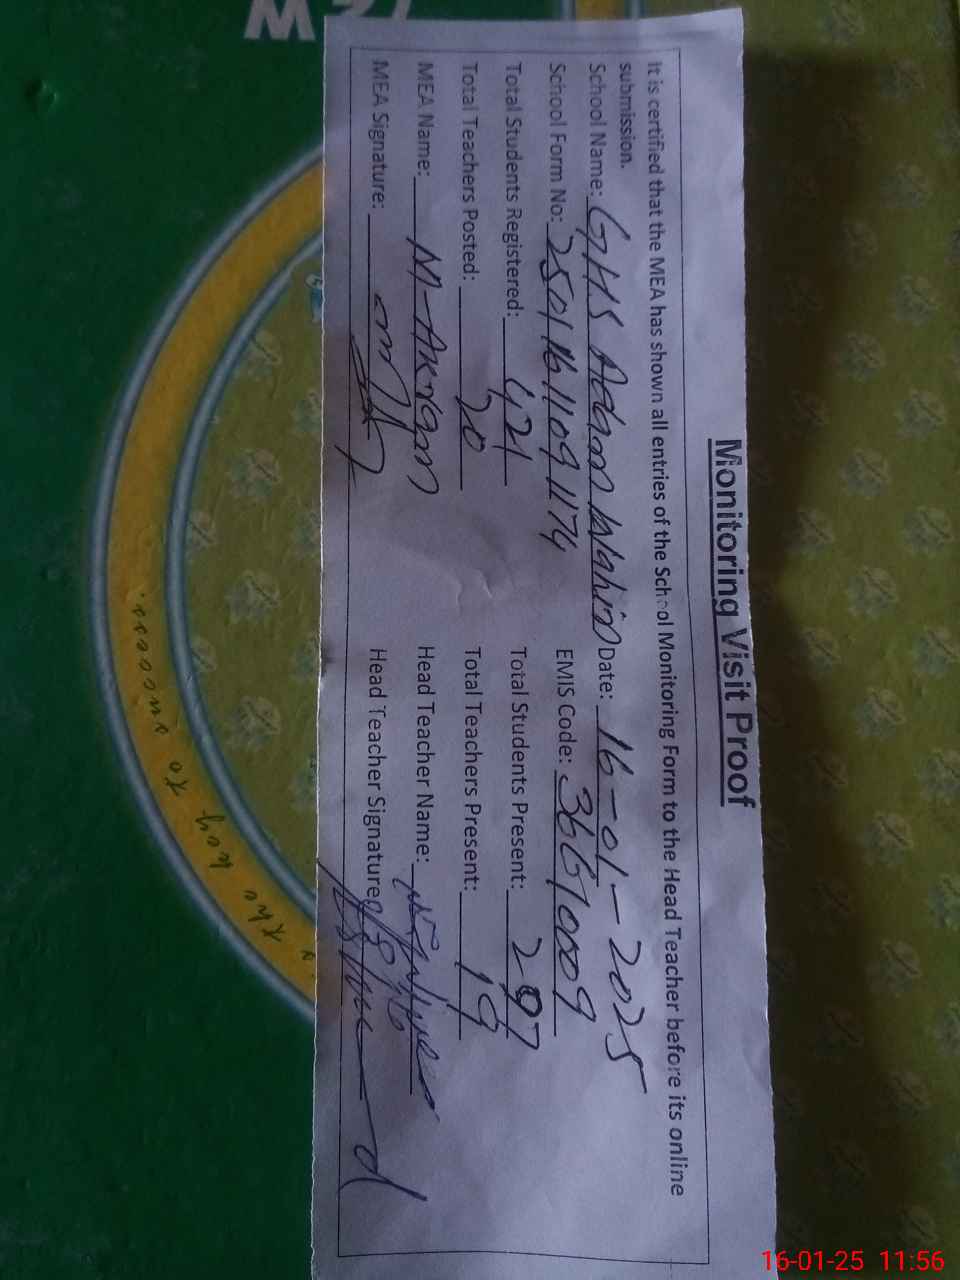 Monitoring Visit Proof
It is certified that the MEA has shown all entries of the School Monitoring Form to the Head Teacher before its online
submission.
School Name: GHS Addan Wahin Date: 16-01-2025
School Form No: 25011611091174 EMIS Code: 36610009
Total Students Registered: 421 Total Students Present: 297
Total Teachers Posted: 20 Total Teachers Present: 19
MEA Name: Head Teacher Name:
MEA Signature: Head Teacher Signature
the key to success.
16-01-25 11:56